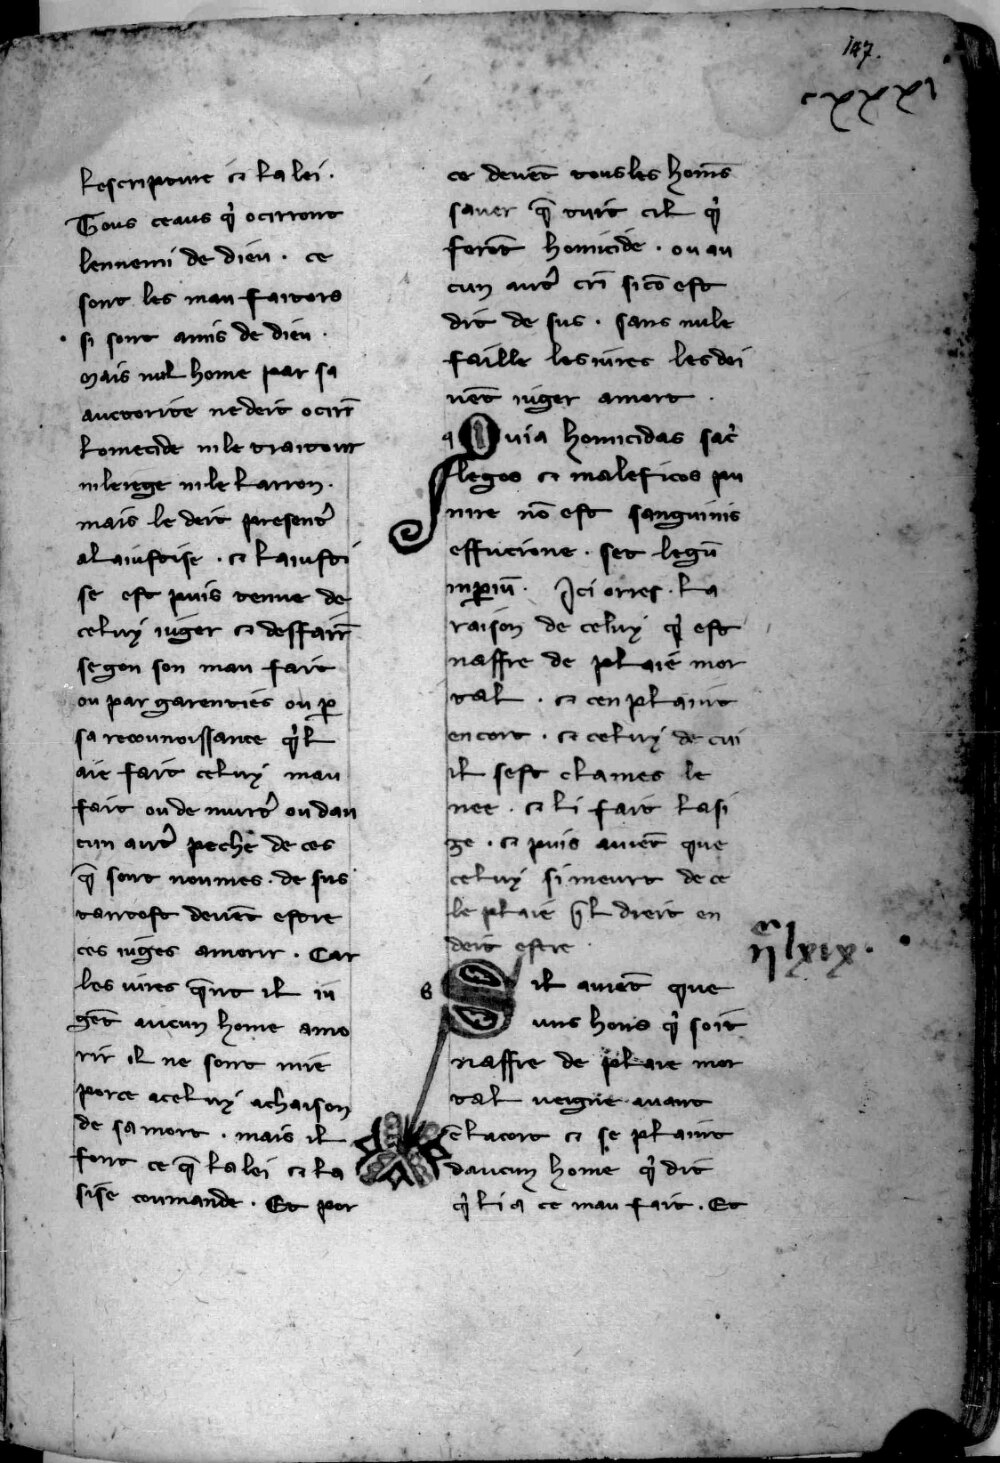 127.
cxxxi
lescripture ⁊ la lei.
Tous ceaus q̾ ocirront
lennemi de dieu. ce
sont les mau faitors
si sont amis de dieu.
mais nul home par sa
auctorite ne deit ocirr̄
lomecide ni le traitour
ni lerege ni le larron.
mais le deit present̾
a la iustise. ⁊ la iusti
se est puis tenue de
celuy iuger ⁊ deffair̄
segon son mau fait
ou par garenties ou ꝑ
sa recounoissance q̾l
aie fait celuy mau
fait ou de murt̾ ou dau
cun aut̾ peche de ces
q̄ sont noumes. de sus
tantost deuēt estre
ces iuges a morir. Car
les iures q̄nt il iu
gēt aucun home a mo
rir il ne sont mie
por ce a celuy achaison
de sa mort. mais il
font ce q̄ la lei ⁊ la
sise coumande. Et por
ce deuēt tous les homēs
sauer q̄ tuit cil q̾
ferōt homicide. ou au
cun aut̾ cri si cō est
dit de sus. sans nule
faille les iures les doi
uēt iuger a mort.
q Quia homicidas sac̾
legos ⁊ maleficos pu
nire nō est sanguinis
effucione. set legū
inꝑiū. Ici orres. la
raison de celuy q̾ est
naffre de plaie mor
tal. ⁊ cen plaint
en cort. ⁊ celuy de cui
il sest clames le
nee. ⁊ li fait lasi
ge. ⁊ puis auiēt que
celuy si meurt de ce
le plaie q̄l dreit en
deit estre.
lxix.
s Sil auiēt que
uns hons q̾ soit
naffre de plaie mor
tal ueigne auant
ē la cort ⁊ se plaint
daucun home q̾ dit
q̾ li a ce mau fait. Et